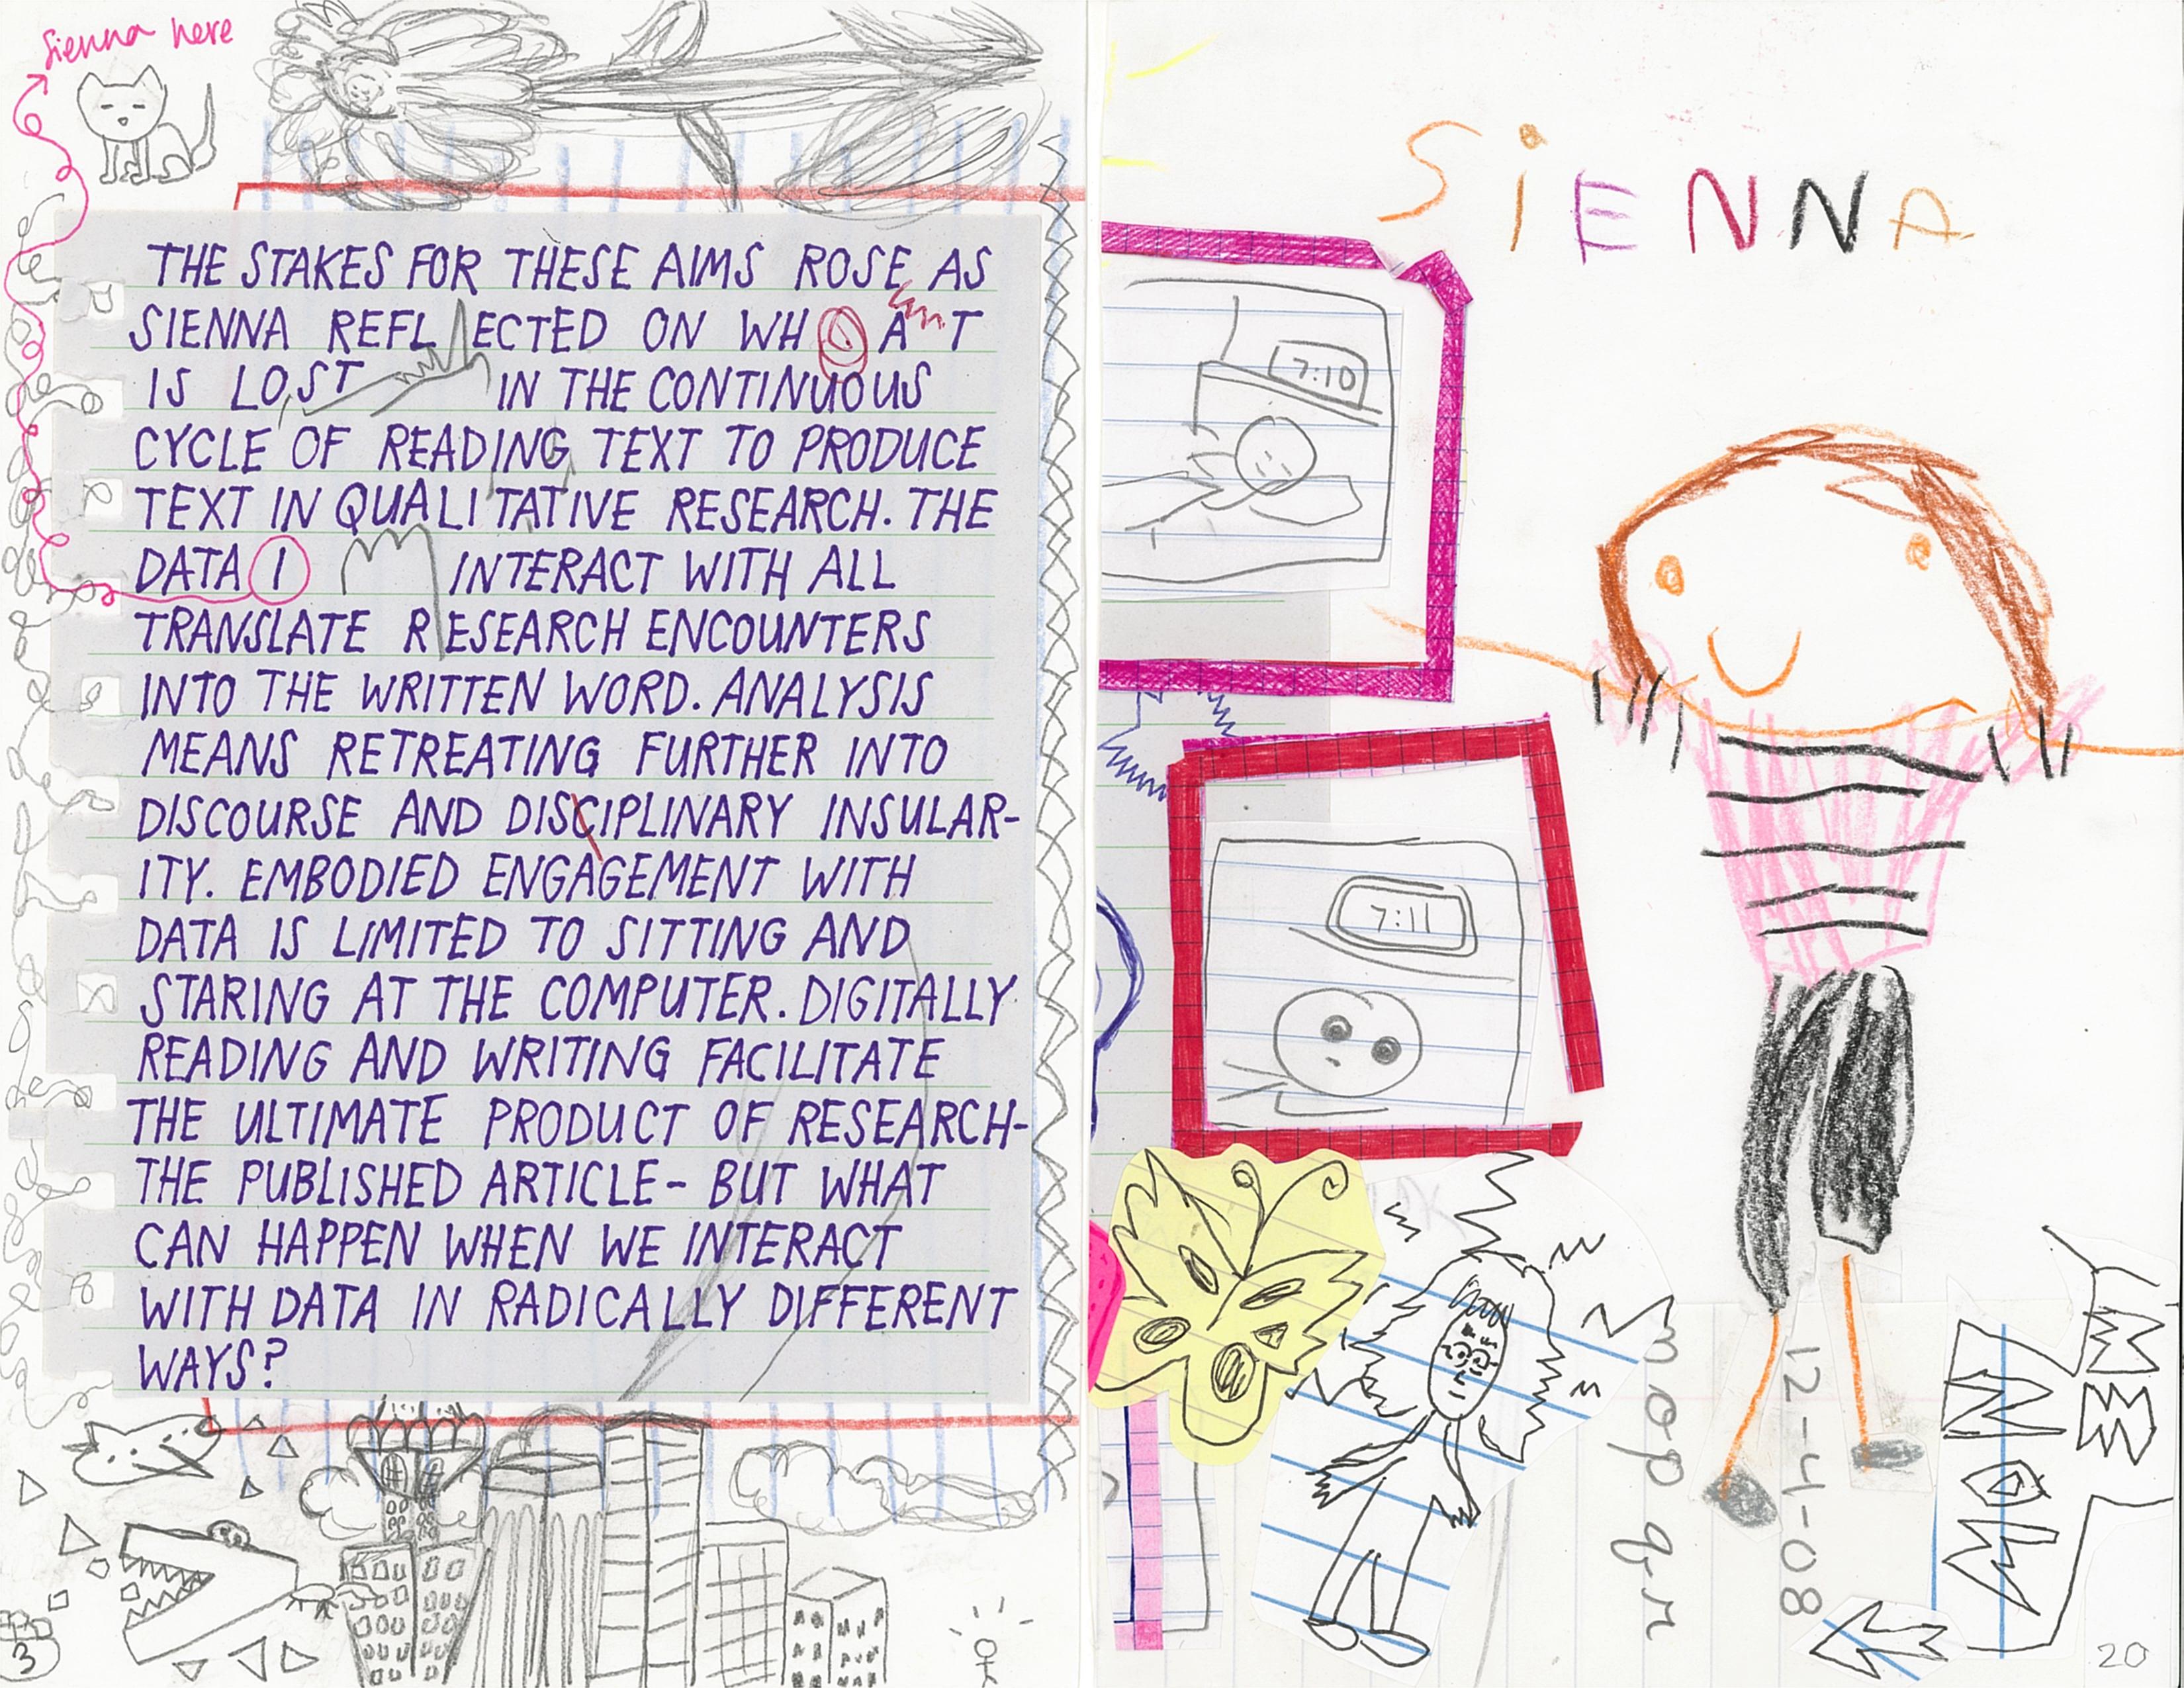 Sienna here
THE STAKES FOR THESE AIMS ROSE AS
SIENNA REFLECTED ON WHAT
IS LOST IN THE CONTINUOUS
CYCLE OF READING TEXT TO PRODUCE
TEXT IN QUALITATIVE RESEARCH. THE
DATA I INTERACT WITH ALL
TRANSLATE RESEARCH ENCOUNTERS
INTO THE WRITTEN WORD. ANALYSIS
MEANS RETREATING FURTHER INTO
DISCOURSE AND DISCIPLINARY INSULAR-
ITY. EMBODIED ENGAGEMENT WITH
DATA IS LIMITED TO SITTING AND
STARING AT THE COMPUTER. DIGITALLY
READING AND WRITING FACILITATE
THE ULTIMATE PRODUCT OF RESEARCH-
THE PUBLISHED ARTICLE- BUT WHAT
CAN HAPPEN WHEN WE INTERACT
WITH DATA IN RADICALLY DIFFERENT
WAYS?
3
SiENNA
7:10
7:11
m o p q r
12-4-08
ME
NOW
20